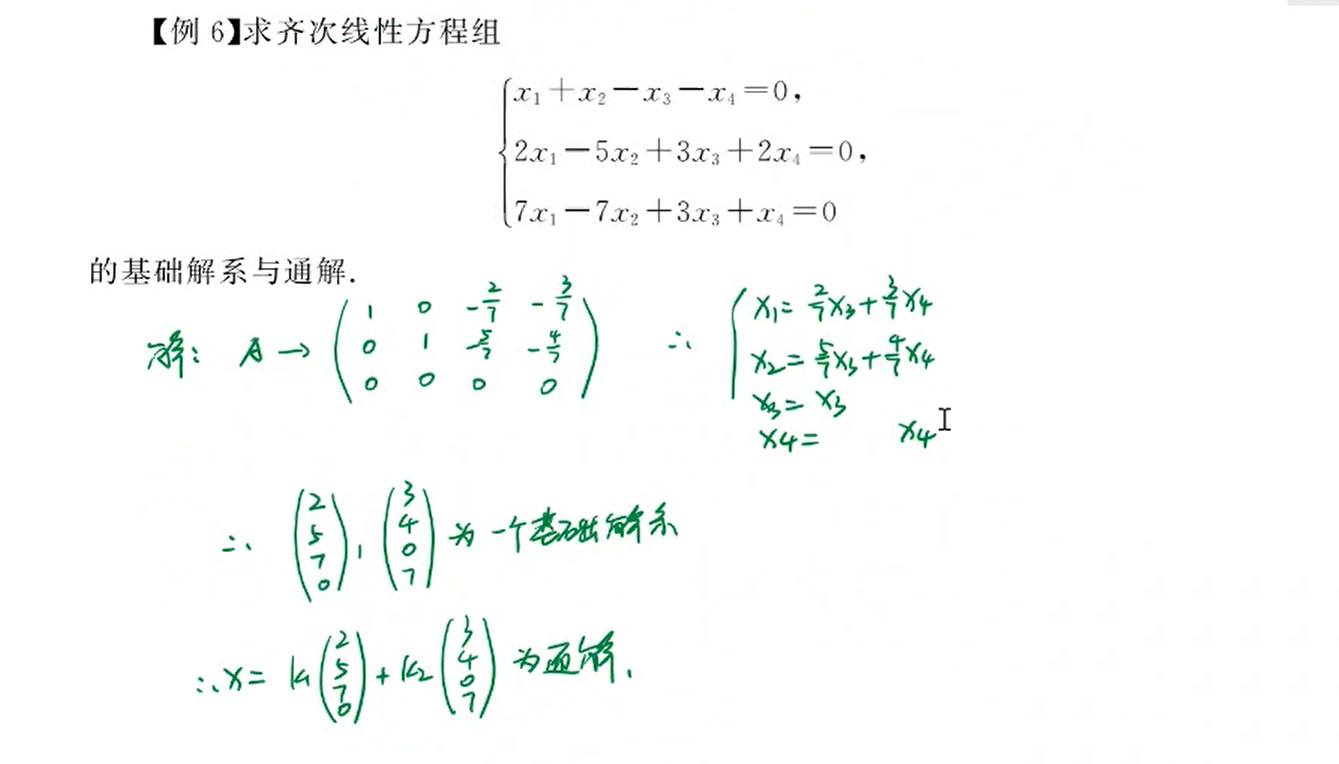 【例 6】求齐次线性方程组
x₁+x₂-x₃-x₄=0,
2x₁-5x₂+3x₃+2x₄=0,
7x₁-7x₂+3x₃+x₄=0
的基础解系与通解.
解: A → ( 1 0 -2/7 -3/7 ; 0 1 -5/7 -4/7 ; 0 0 0 0 ) ∴ { x₁= 2/7 x₃+ 3/7 x₄
x₂= 5/7 x₃+ 4/7 x₄
x₃= x₃
x₄= x₄
∴ (2 5 7 0), (3 4 0 7) 为一个基础解系
∴ x= k₁(2 5 7 0) + k₂(3 4 0 7) 为通解.